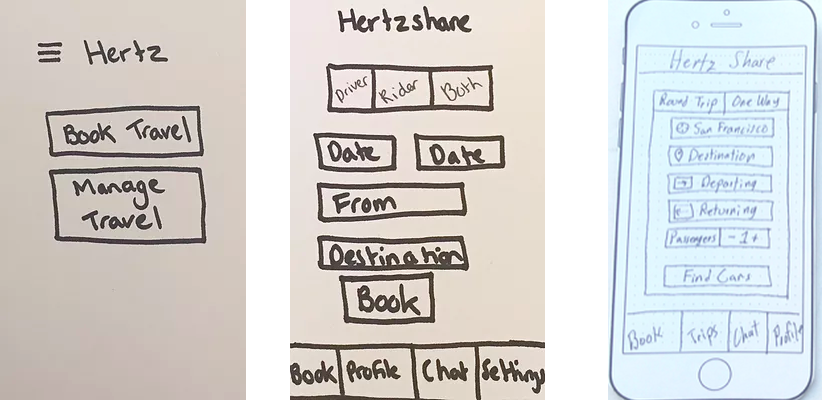 Hertz
Book Travel
Manage
Travel
Hertzshare
Driver Rider Both
Date Date
From
Destination
Book
Book Profile Chat Settings
Hertz Share
Round Trip One Way
San Francisco
Destination
Departing
Returning
Passengers - 1 +
Find Cars
Book Trips Chat Profile